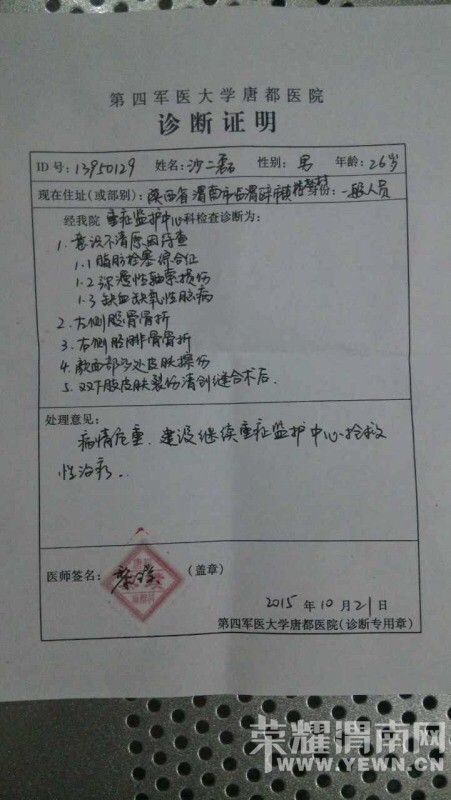 第四军医大学唐都医院
诊断证明
ID号：13950129 姓名：沙二磊 性别：男 年龄：26岁
现在住址(或部别)：陕西省渭南市临渭区 身份：一般人员
经我院 重症监护中心 科检查诊断为：
1. 意识不清原因待查
1.1 脂肪栓塞综合征
1.2 弥漫性轴索损伤
1.3 缺血缺氧性脑病
2. 左侧股骨骨折
3. 右侧胫腓骨骨折
4. 颜面部多处皮肤擦伤
5. 双下肢皮肤裂伤清创缝合术后.
处理意见：
病情危重，建议继续重症监护中心抢救
性治疗.
医师签名： (盖章)
2015 年 10 月 21 日
第四军医大学唐都医院(诊断专用章)
荣耀渭南网
WWW.YEWN.CN